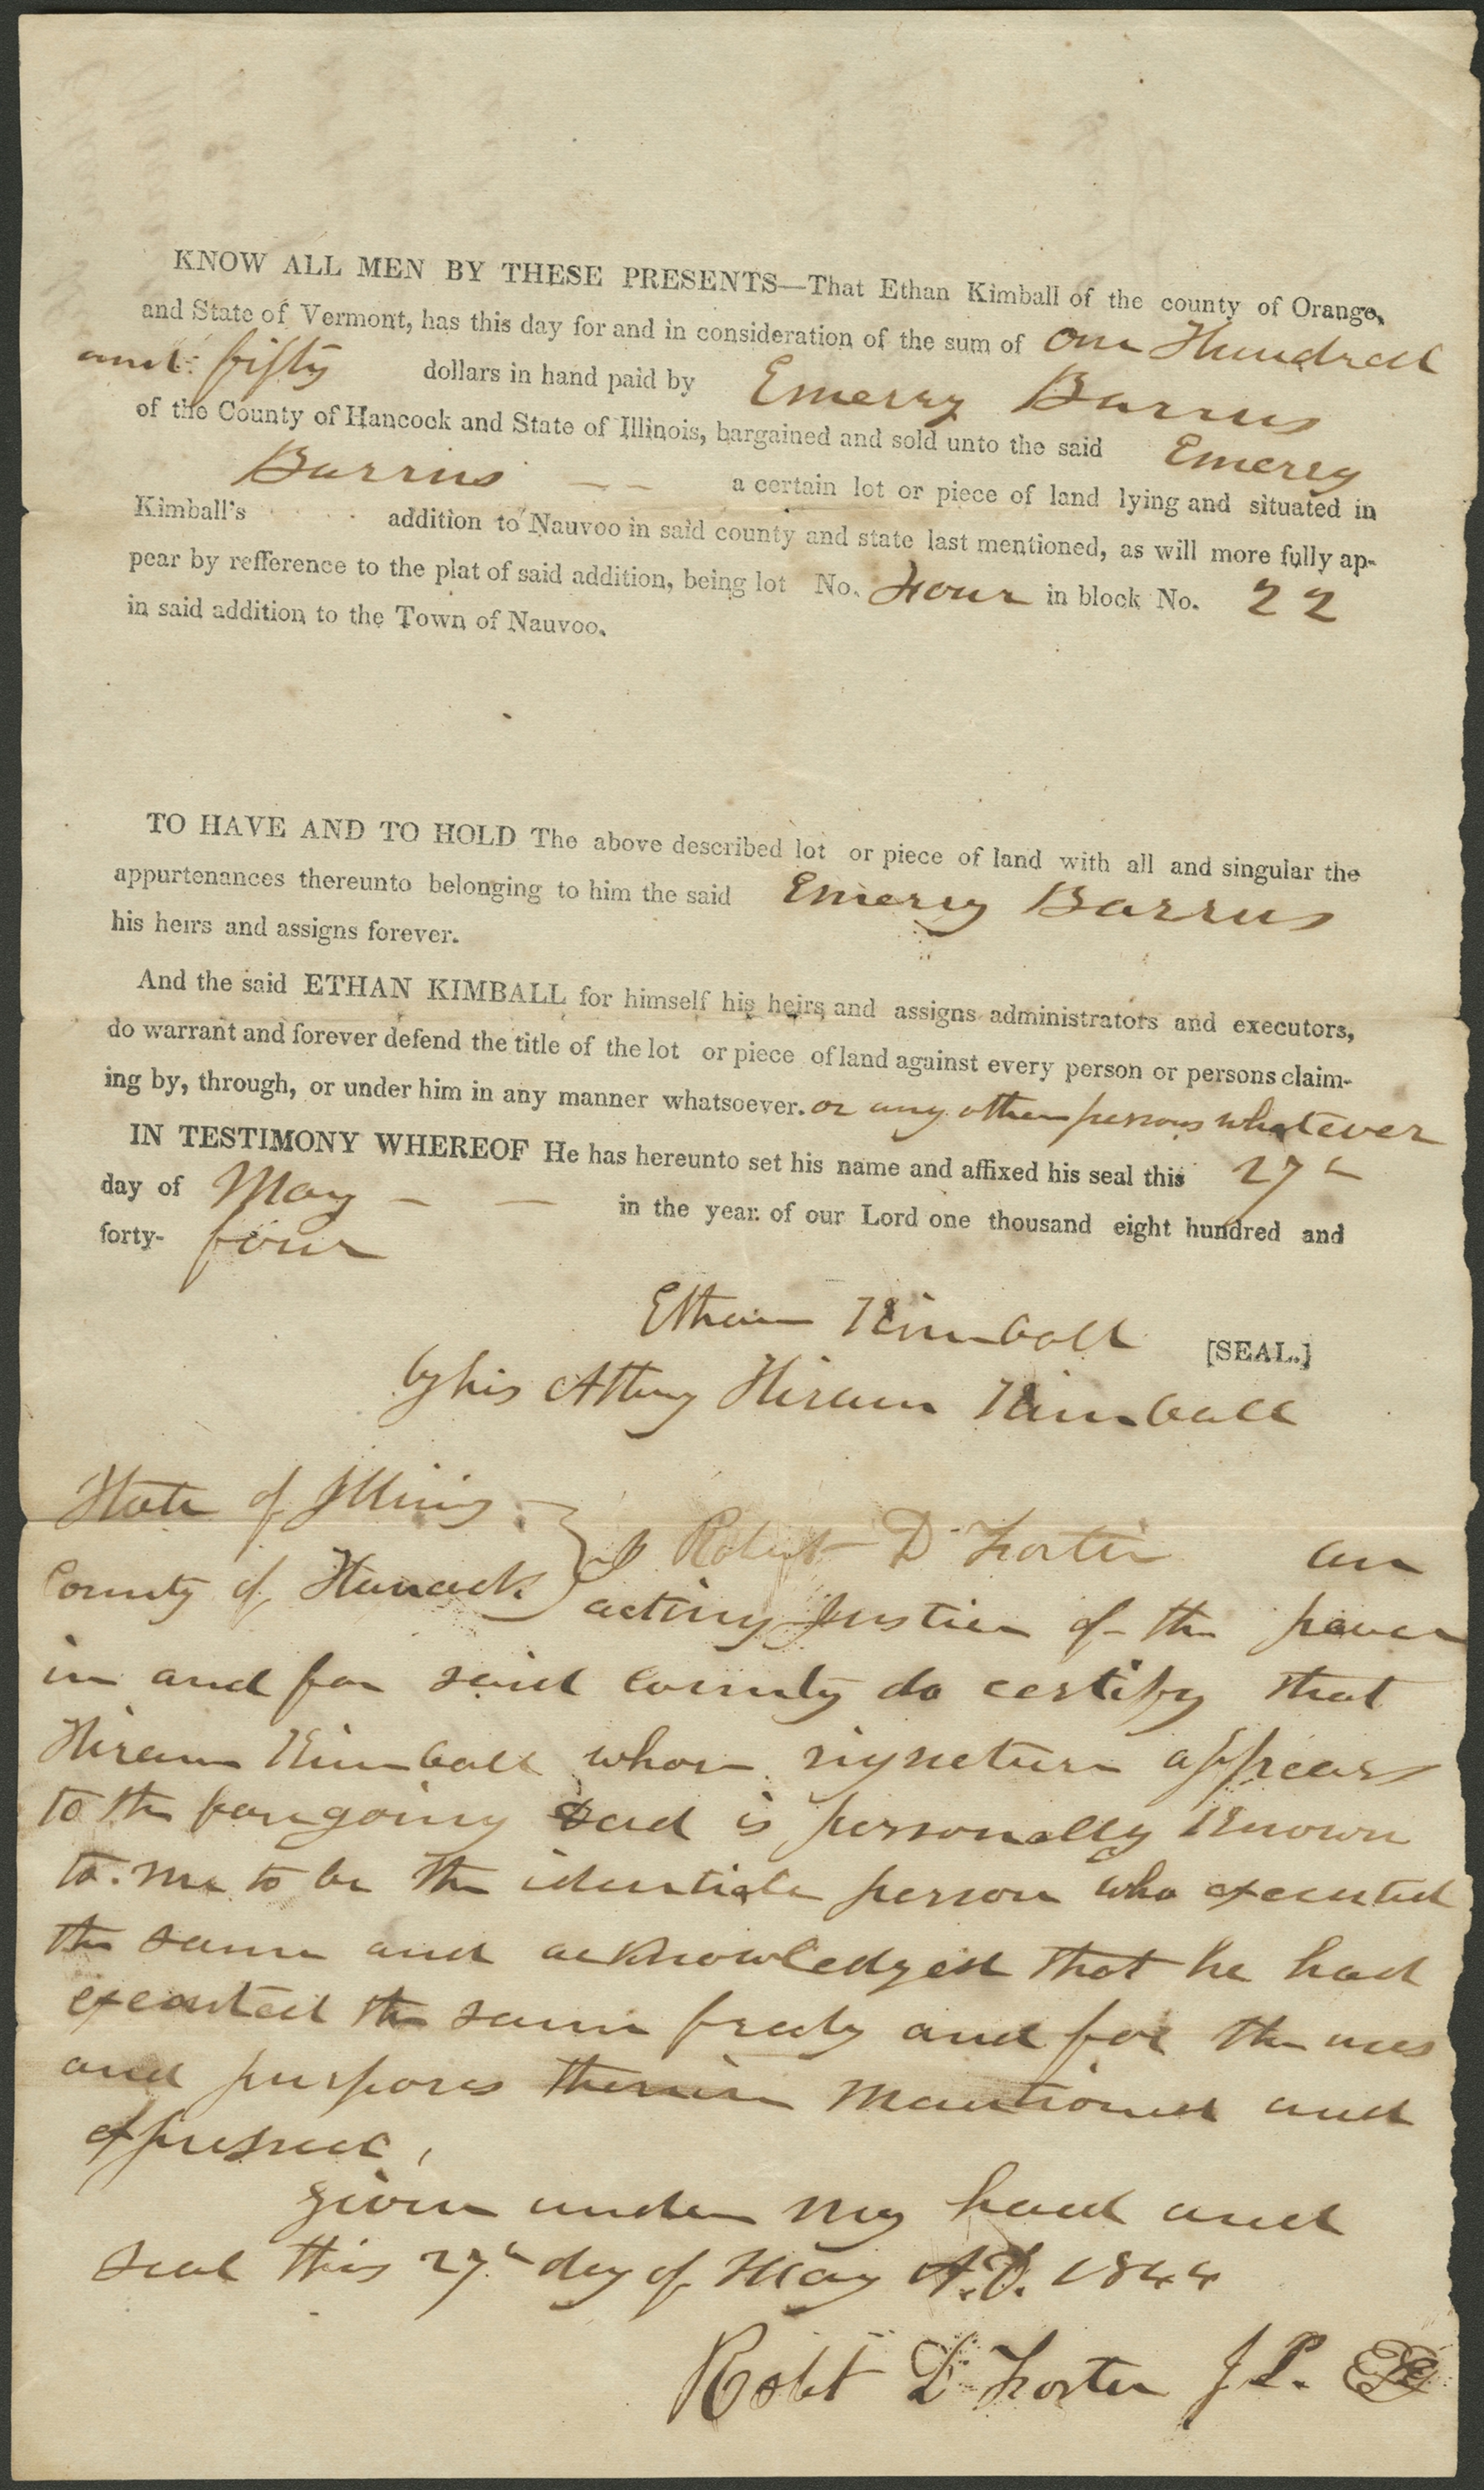 KNOW ALL MEN BY THESE PRESENTS—That Ethan Kimball of the county of Orange,
and State of Vermont, has this day for and in consideration of the sum of One Hundred
and fifty dollars in hand paid by Emerey Barrus
of the County of Hancock and State of Illinois, bargained and sold unto the said Emerey
Barrus — — a certain lot or piece of land lying and situated in
Kimball's addition to Nauvoo in said county and state last mentioned, as will more fully ap-
pear by refference to the plat of said addition, being lot No. Four in block No. 22
in said addition to the Town of Nauvoo.
TO HAVE AND TO HOLD The above described lot or piece of land with all and singular the
appurtenances thereunto belonging to him the said Emerey Barrus
his heirs and assigns forever.
And the said ETHAN KIMBALL for himself his heirs and assigns administrators and executors,
do warrant and forever defend the title of the lot or piece of land against every person or persons claim-
ing by, through, or under him in any manner whatsoever. or any other persons whatever
IN TESTIMONY WHEREOF He has hereunto set his name and affixed his seal this 27th
day of May — — in the year of our Lord one thousand eight hundred and
forty- four
Ethan Kimball [SEAL.]
by his Atteny Hiram Kimball
State of Illinois
County of Hancock } I Robert D Foster an
acting Justice of the peace
in and for said County do certify that
Hiram Kimball whose signeture appears
to the foregoing Deed is personally Known
to me to be the identicle person who executed
the same and acknowledged that he had
executed the same freely and for the uses
and purposes therein Mentioned and
expressed,
Given under My hand and
seal this 27th day of May A.D. 1844
Robt D Foster J.P.